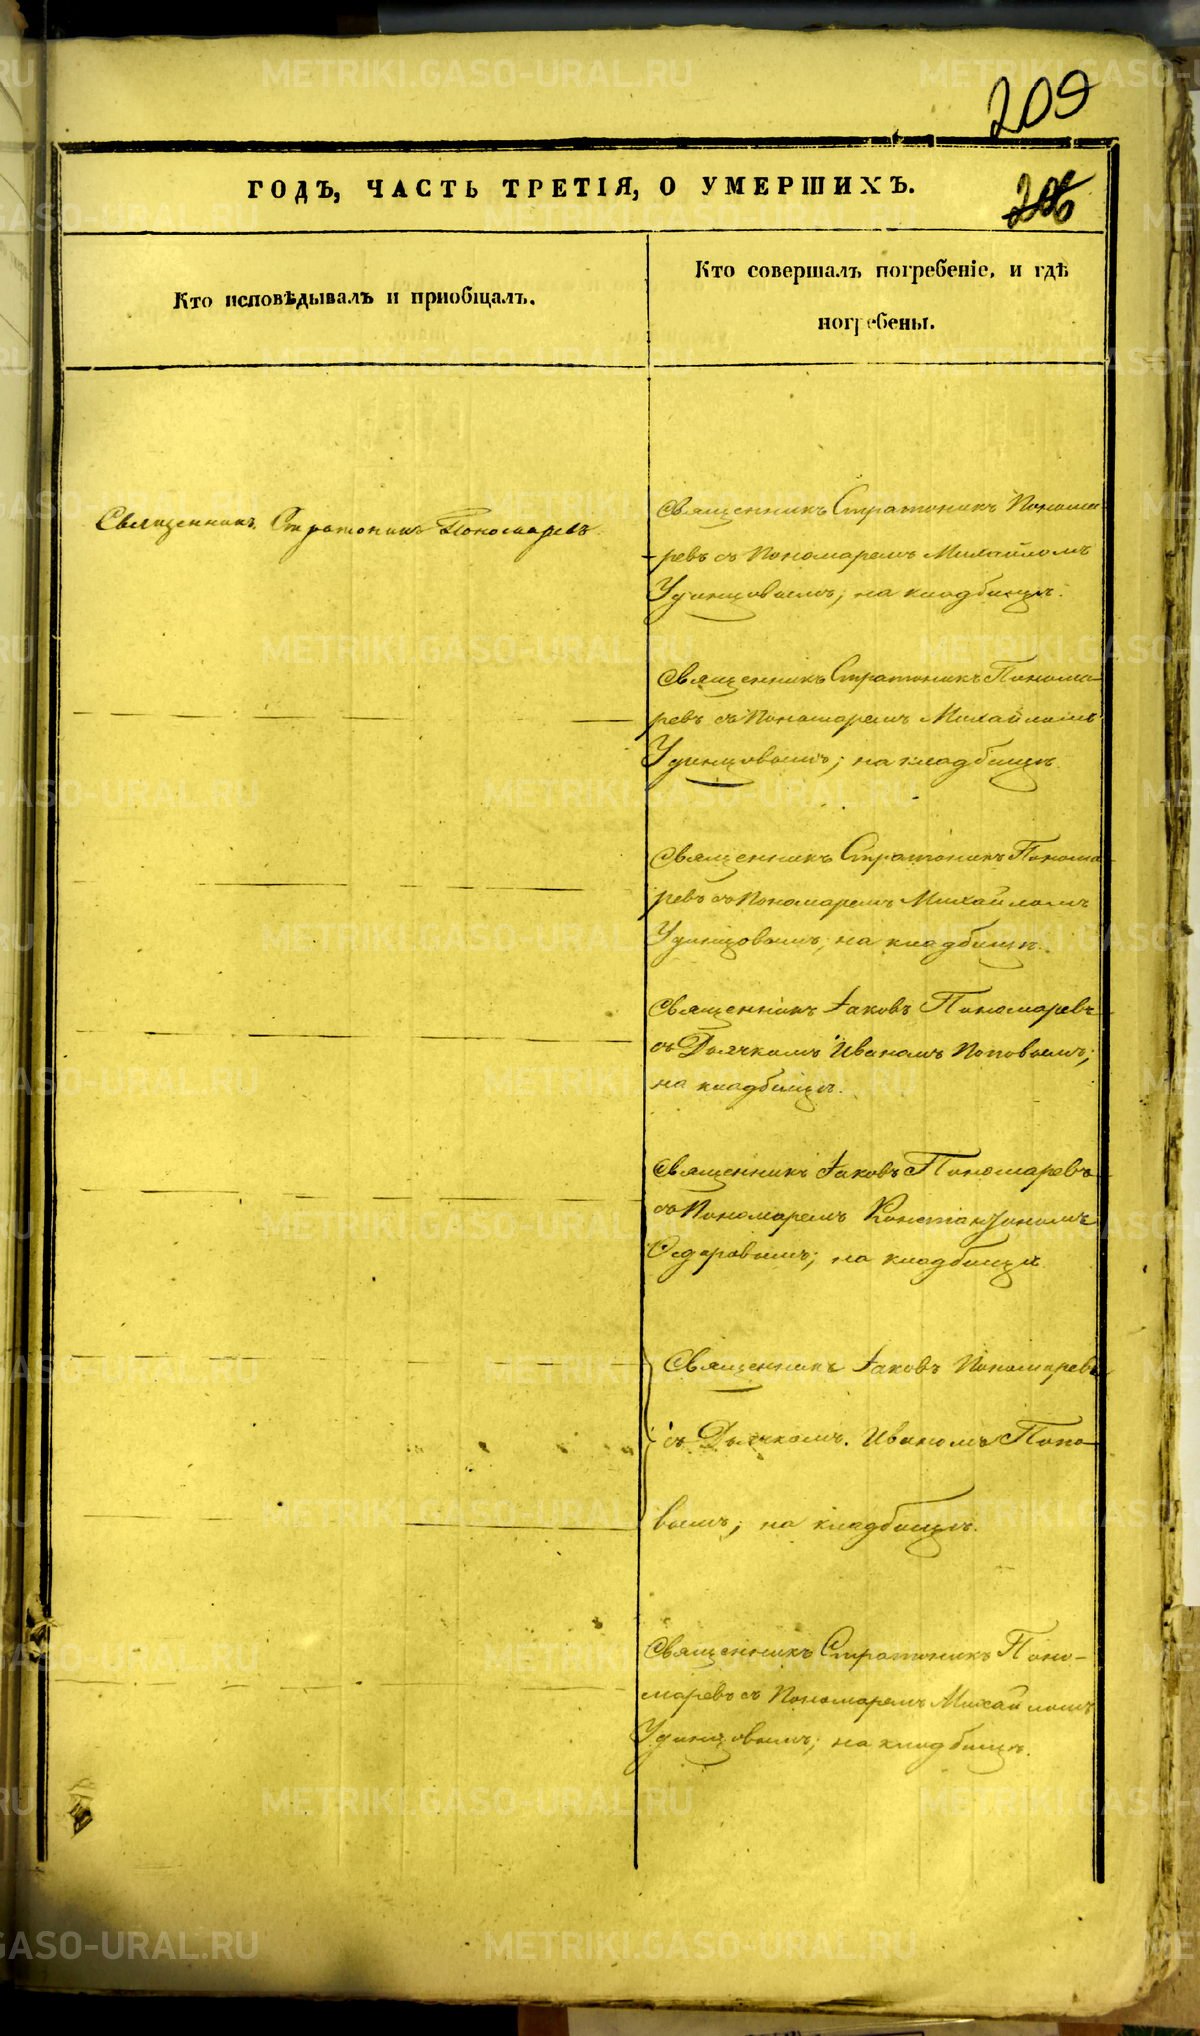 209
ГОДЪ, ЧАСТЬ ТРЕТІЯ, О УМЕРШИХЪ.
206
Кто исповѣдывалъ и приобщалъ.
Кто совершалъ погребеніе, и гдѣ
погребены.
Священникъ Стратоникъ Пономаревъ
Священникъ Стратоникъ Понома
ревъ съ Пономаремъ Михайломъ
Удинцовымъ; на кладбищѣ.
Священникъ Стратоникъ Понома
ревъ съ Пономаремъ Михайломъ
Удинцовымъ; на кладбищѣ.
Священникъ Стратоникъ Понома
ревъ съ Пономаремъ Михайломъ
Удинцовымъ; на кладбищѣ.
Священникъ Іаковъ Пономаревъ
съ Дьячкомъ Иваномъ Поповымъ;
на кладбищѣ.
Священникъ Іаковъ Пономаревъ
съ Пономаремъ Константиномъ
Ѳедоровымъ; на кладбищѣ.
Священникъ Іаковъ Пономаревъ
съ Дьячкомъ Иваномъ Попо-
вымъ; на кладбищѣ.
Священникъ Стратоникъ Поно-
маревъ съ Пономаремъ Михайломъ
Удинцовымъ; на кладбищѣ.
METRIKI.GASO-URAL.RU